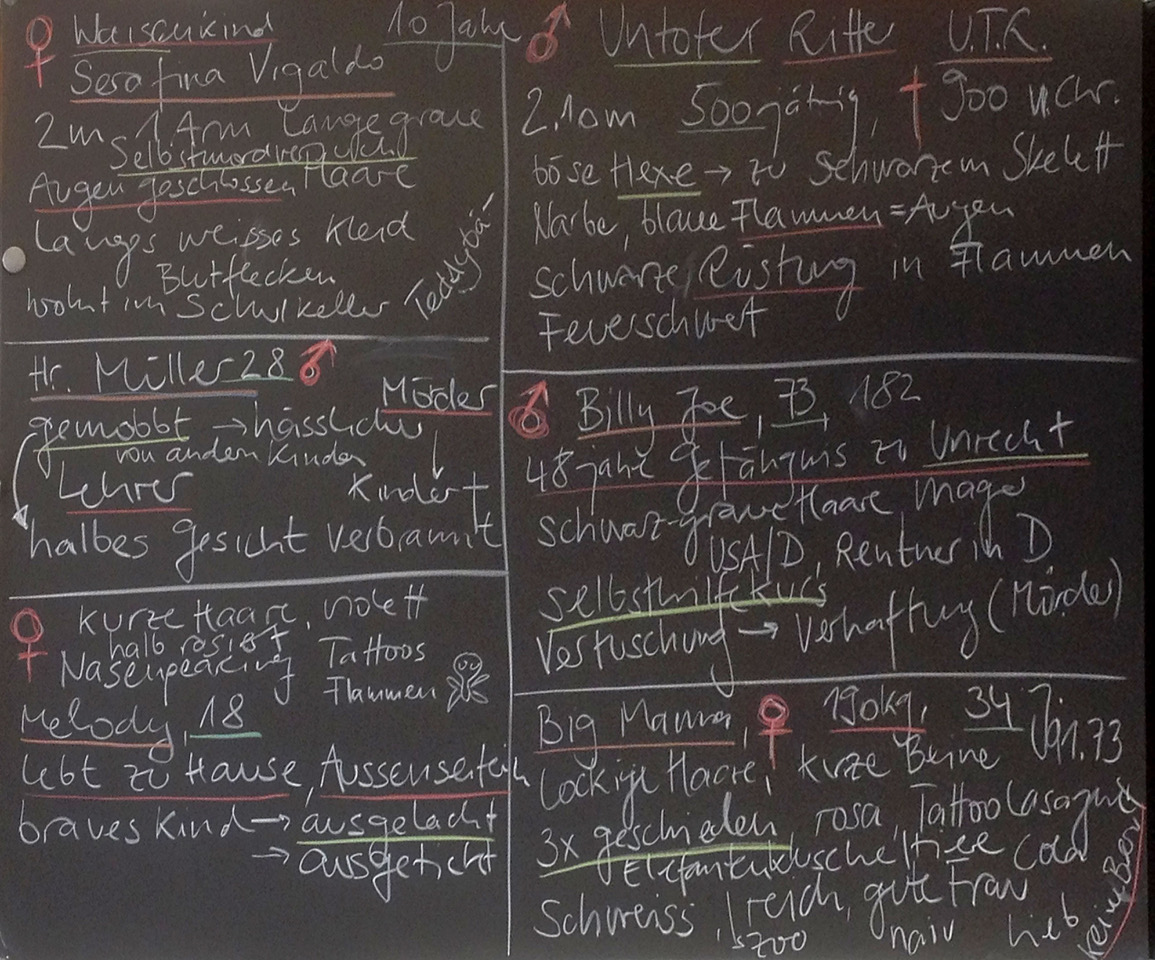 ♀ Waisenkind 10 Jahre
Serafina Vigaldo
2m 1 Arm lange graue
Selbstmordversuch
Augen geschlossen Haare
langes weisses Kleid
Blutflecken
wohnt im Schulkeller Teddybä-
Hr. Müller 28 ♂
Mörder
gemobbt → hässlicher
von andern Kinder
Lehrer
Kinder †
halbes Gesicht verbrannt
♀ kurze Haare, violett
halb rasiert Tattoos
Nasenpearcing Flammen
Melody, 18
lebt zu Hause, Aussenseiterin
braves Kind → ausgelacht
→ ausgetickt
♂ Untoter Ritter U.T.R.
2.10m 500jährig, † 900 n.Chr.
böse Hexe → zu schwarzem Skelett
Narbe, blaue Flammen = Augen
schwarze Rüstung in Flammen
Feuerschwert
♂ Billy Joe, 73, 182
48 jahre Gefängnis zu Unrecht
schwarz-graue Haare mager
USA/D, Rentner in D
Selbsthilfekurs
Vertuschung → Verhaftung (Mörder)
Big Mama, ♀ 190kg, 34 J. 1.73
lockige Haare, kurze Beine
3x geschieden, rosa, Tattoo Lasagne
Elefantendusche Cola
Schweiss, reich, gute Frau
↳ Zoo naiv lieb